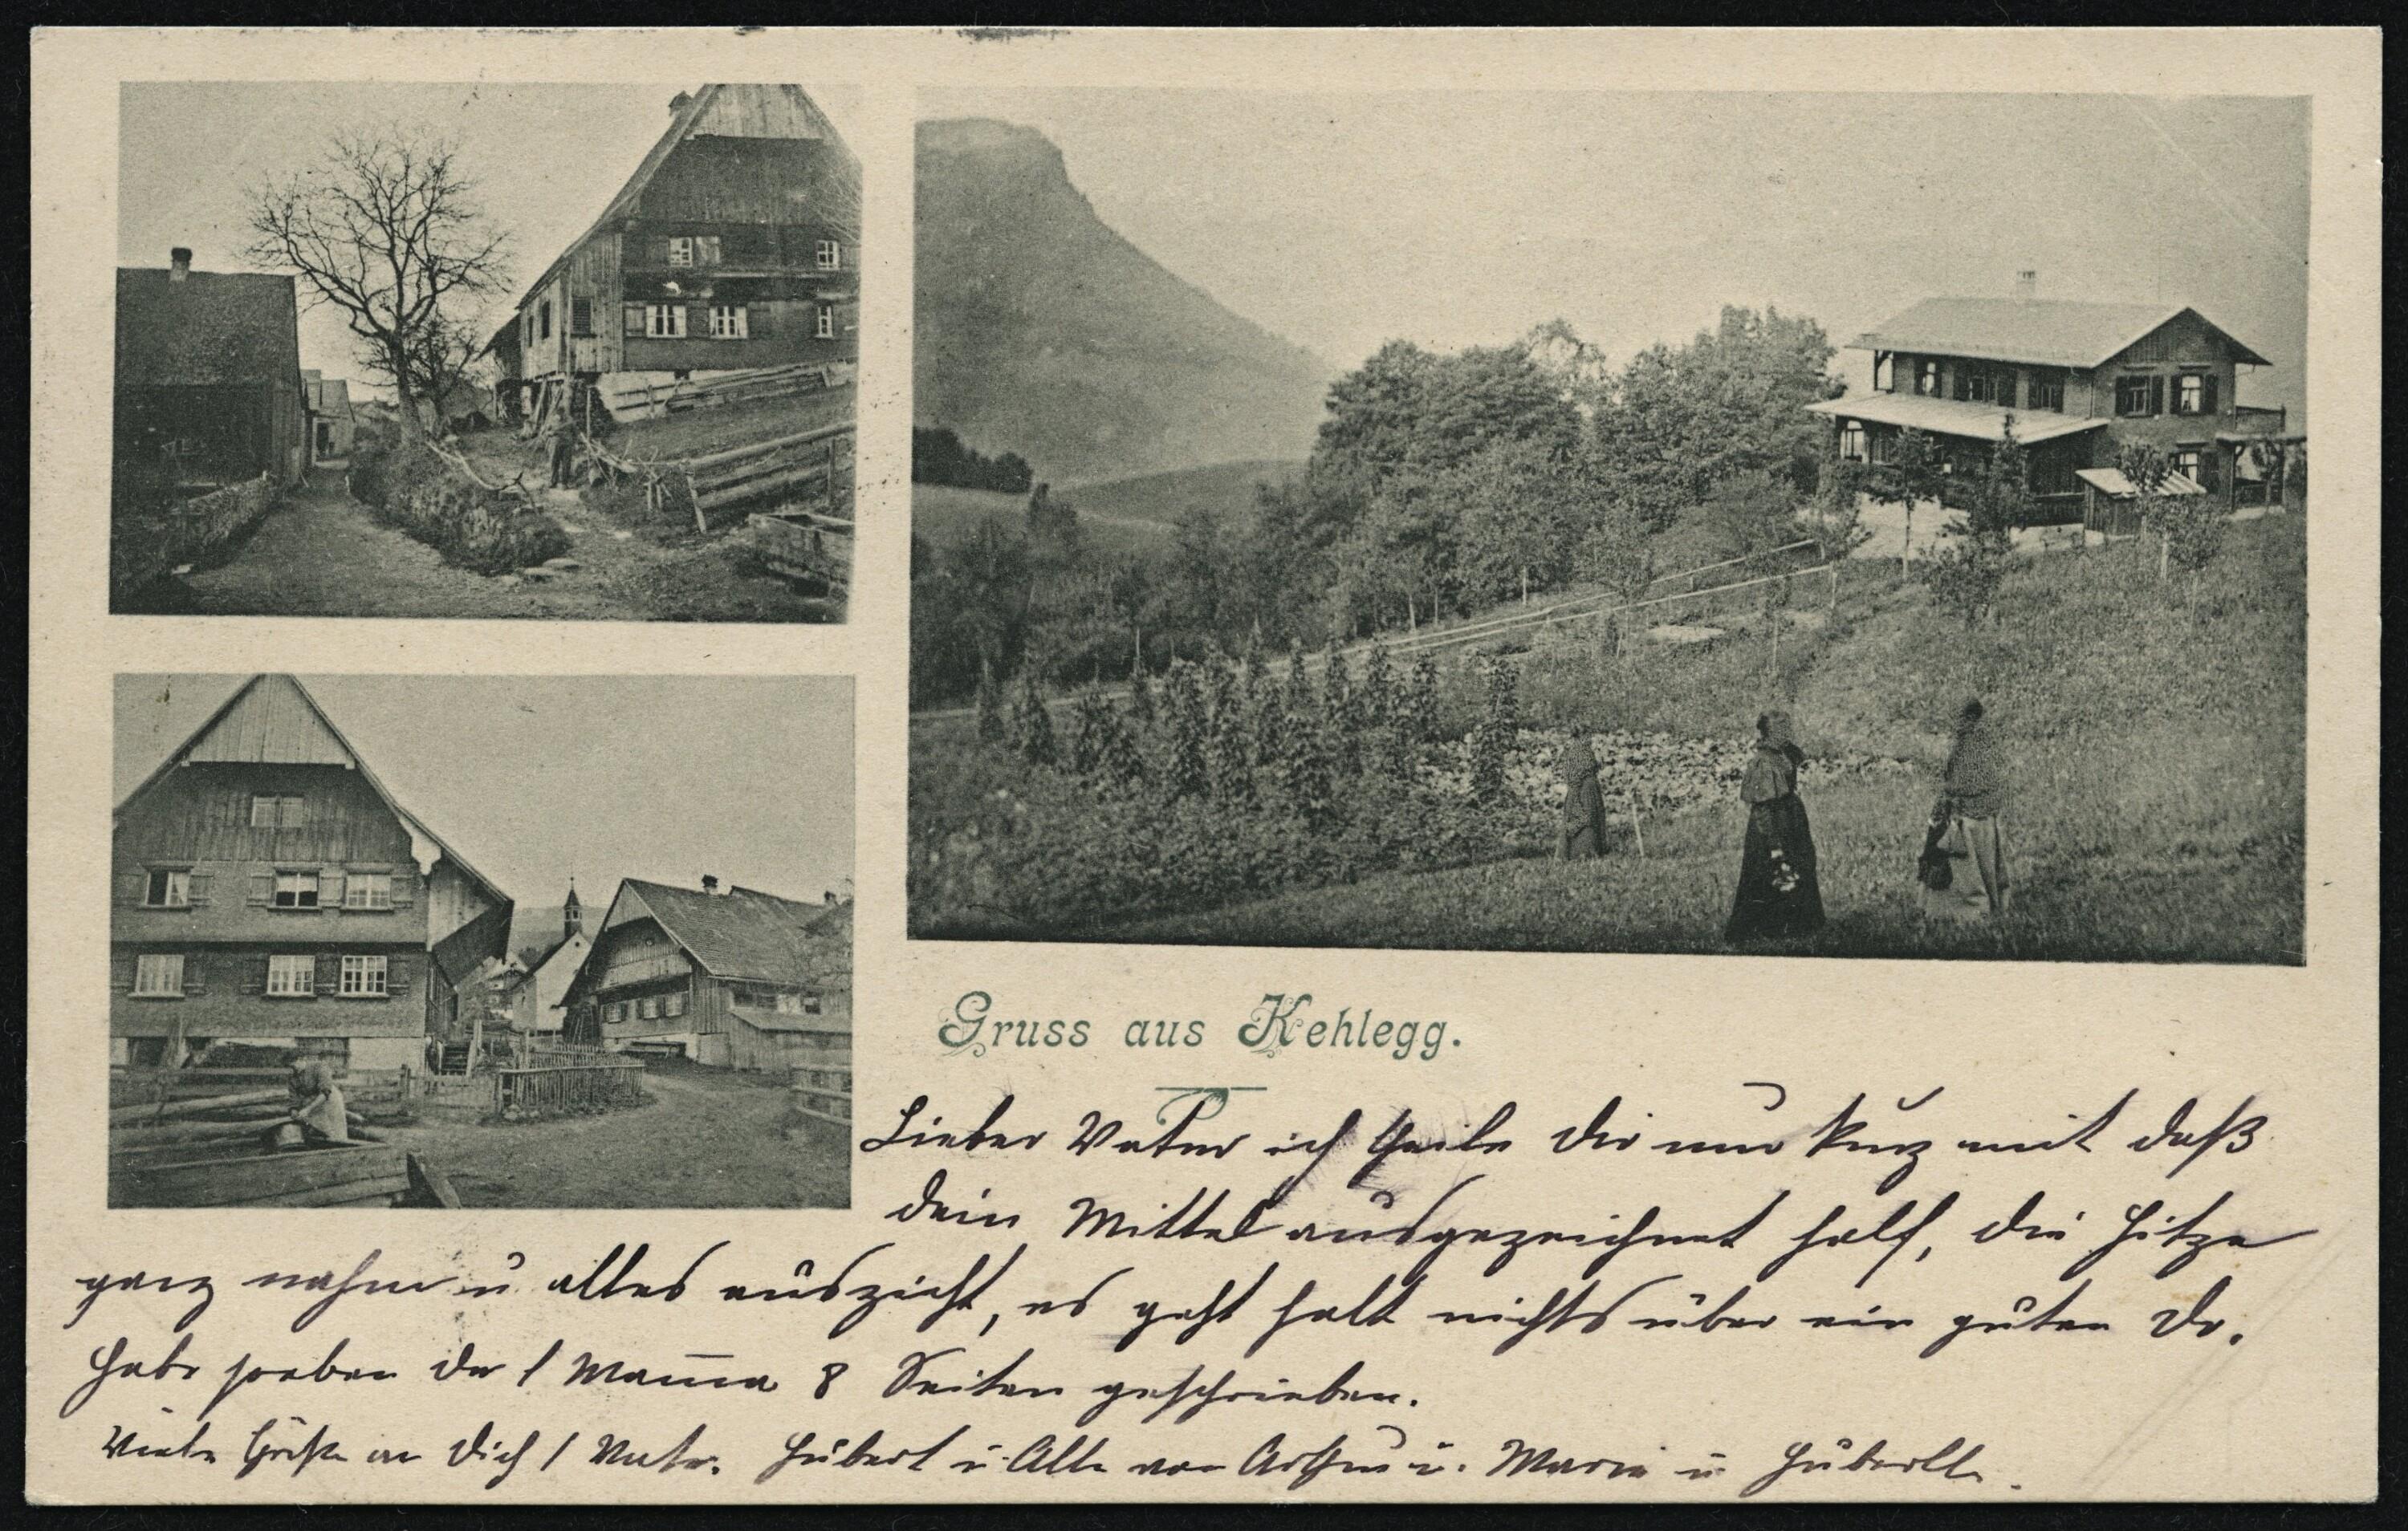 Gruss aus Kehlegg.
Lieber Vater ich theile dir nur kurz mit daß
dein Mittel ausgezeichnet half, die Hitze
ganz nahm u alles auszieht, es geht halt nichts über ein guten Dr.
Habe soeben der l Mamma 8 Seiten geschrieben.
Viele Grüße an Dich l Vater. Hubert u. Alle von Arthur u. Maria u